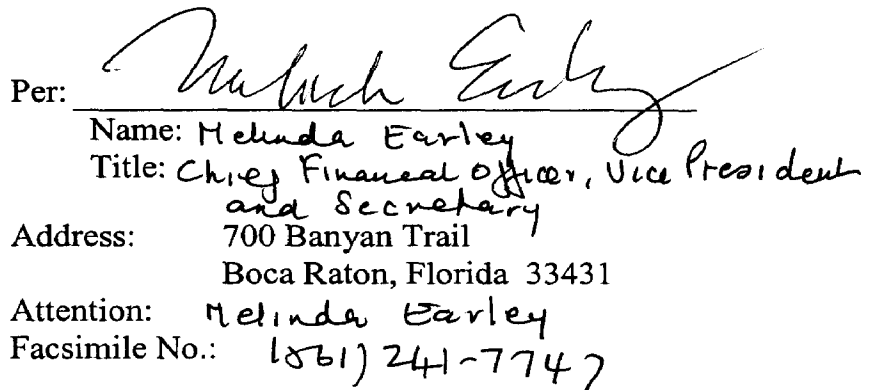 Per: Melinda Earley
Name: Melinda Earley
Title: Chief Financial Officer, Vice President
and Secretary
Address: 700 Banyan Trail
Boca Raton, Florida 33431
Attention: Melinda Earley
Facsimile No.: (561) 241-7747